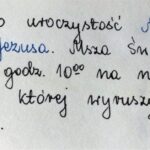 o uroczystość
Jezusa. Msza Św
godz. 10⁰⁰ na
której wyrusz